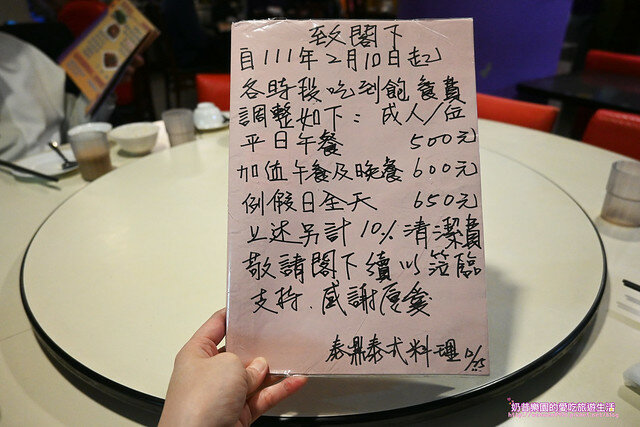 致閣下
自111年2月10日起
各時段吃到飽餐費
調整如下：成人/位
平日午餐 500元
加值午餐及晚餐 600元
例假日全天 650元
上述另計10%清潔費
敬請閣下續以蒞臨
支持.感謝厚愛
泰鼎泰式料理 12/25
奶昔樂園的愛吃旅遊生活